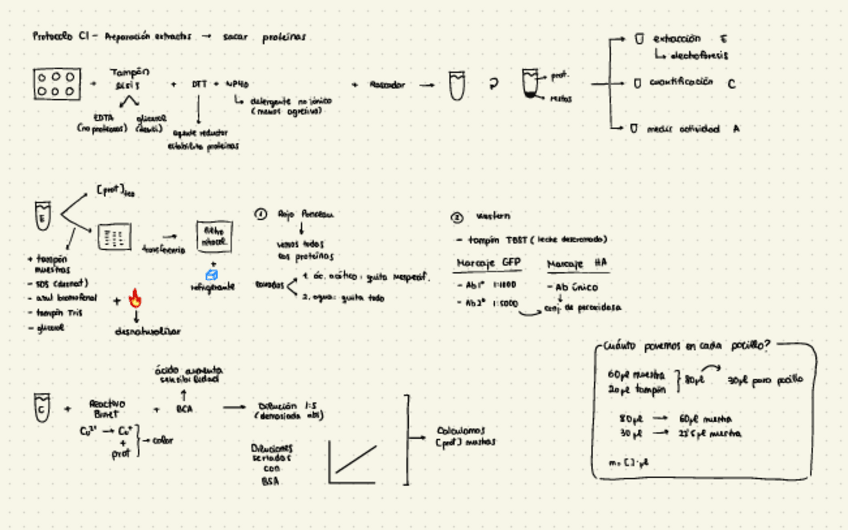 Protocolo C1 - Preparación extractos → sacar proteínas
+ Tampón
Lisis
+ DTT + NP40
+ Rascador →
EDTA
(no proteasas)
glicerol
(densi)
agente reductor
estabiliza proteínas
detergente no iónico
(menos agresivo)
prot.
restos
extracción E
electroforesis
cuantificación C
medir actividad A
E
[prot]
transferencia
filtro
nitrocel.
+
refrigerante
+ tampón
muestras
- SDS (desnat)
- azul bromofenol
- tampón Tris
- glicerol
+
desnaturalizar
① Rojo Ponceau
vemos todas
las proteínas
lavados
1. ác. acético: quita inespecíf.
2. agua: quita todo
② Western
- tampón TBST (leche descremada)
Marcaje GFP
- Ab 1º 1:1000
- Ab 2º 1:5000
Marcaje HA
- Ab único
conj. de peroxidasa
C
+ Reactivo
Biuret
Cu²⁺ → Cu⁺
+
prot
→ color
ácido aumenta
sensibilidad
+ BCA
→ Dilución 1:5
(demasiada abs)
Diluciones
seriadas
con
BSA
Calculamos
[prot] muestras
¿Cuánto ponemos en cada pocillo?
60 µl muestra
20 µl tampón
80 µl
30 µl para pocillo
80 µl → 60 µl muestra
30 µl → 22'5 µl muestra
m = [ ] · µl